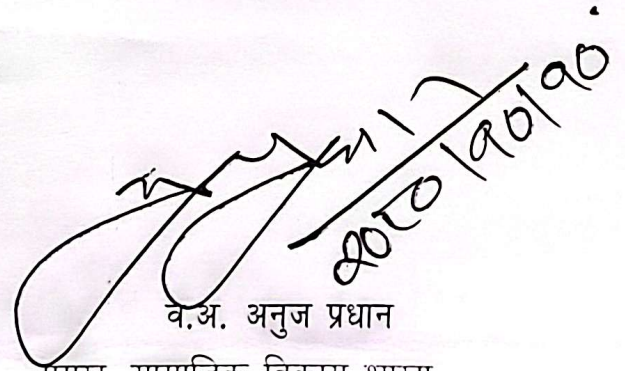 २०८०।१०।१०
व.अ. अनुज प्रधान
प्रमुख, सामाजिक विकास शाखा